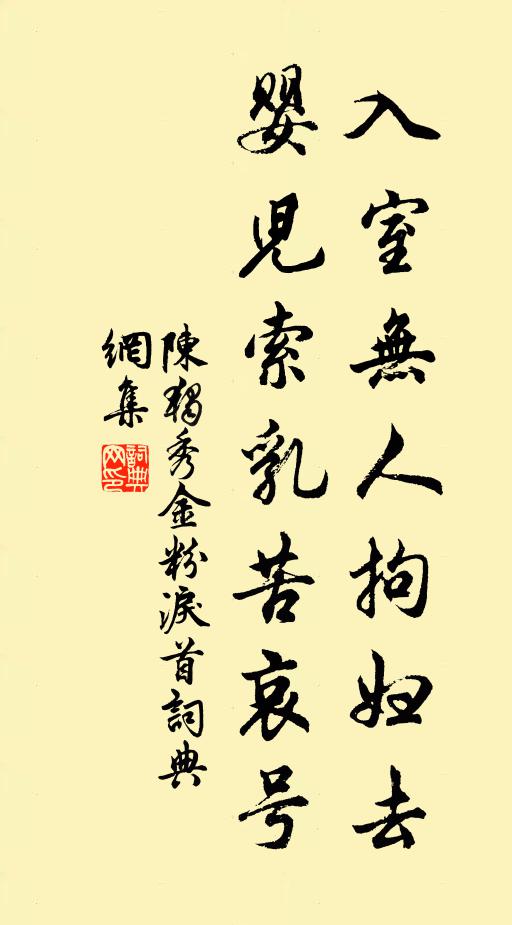 入室無人拘婦去
嬰児索乳苦哀号
陳獨秀金粉淚首詞典
網集
詞典
网印